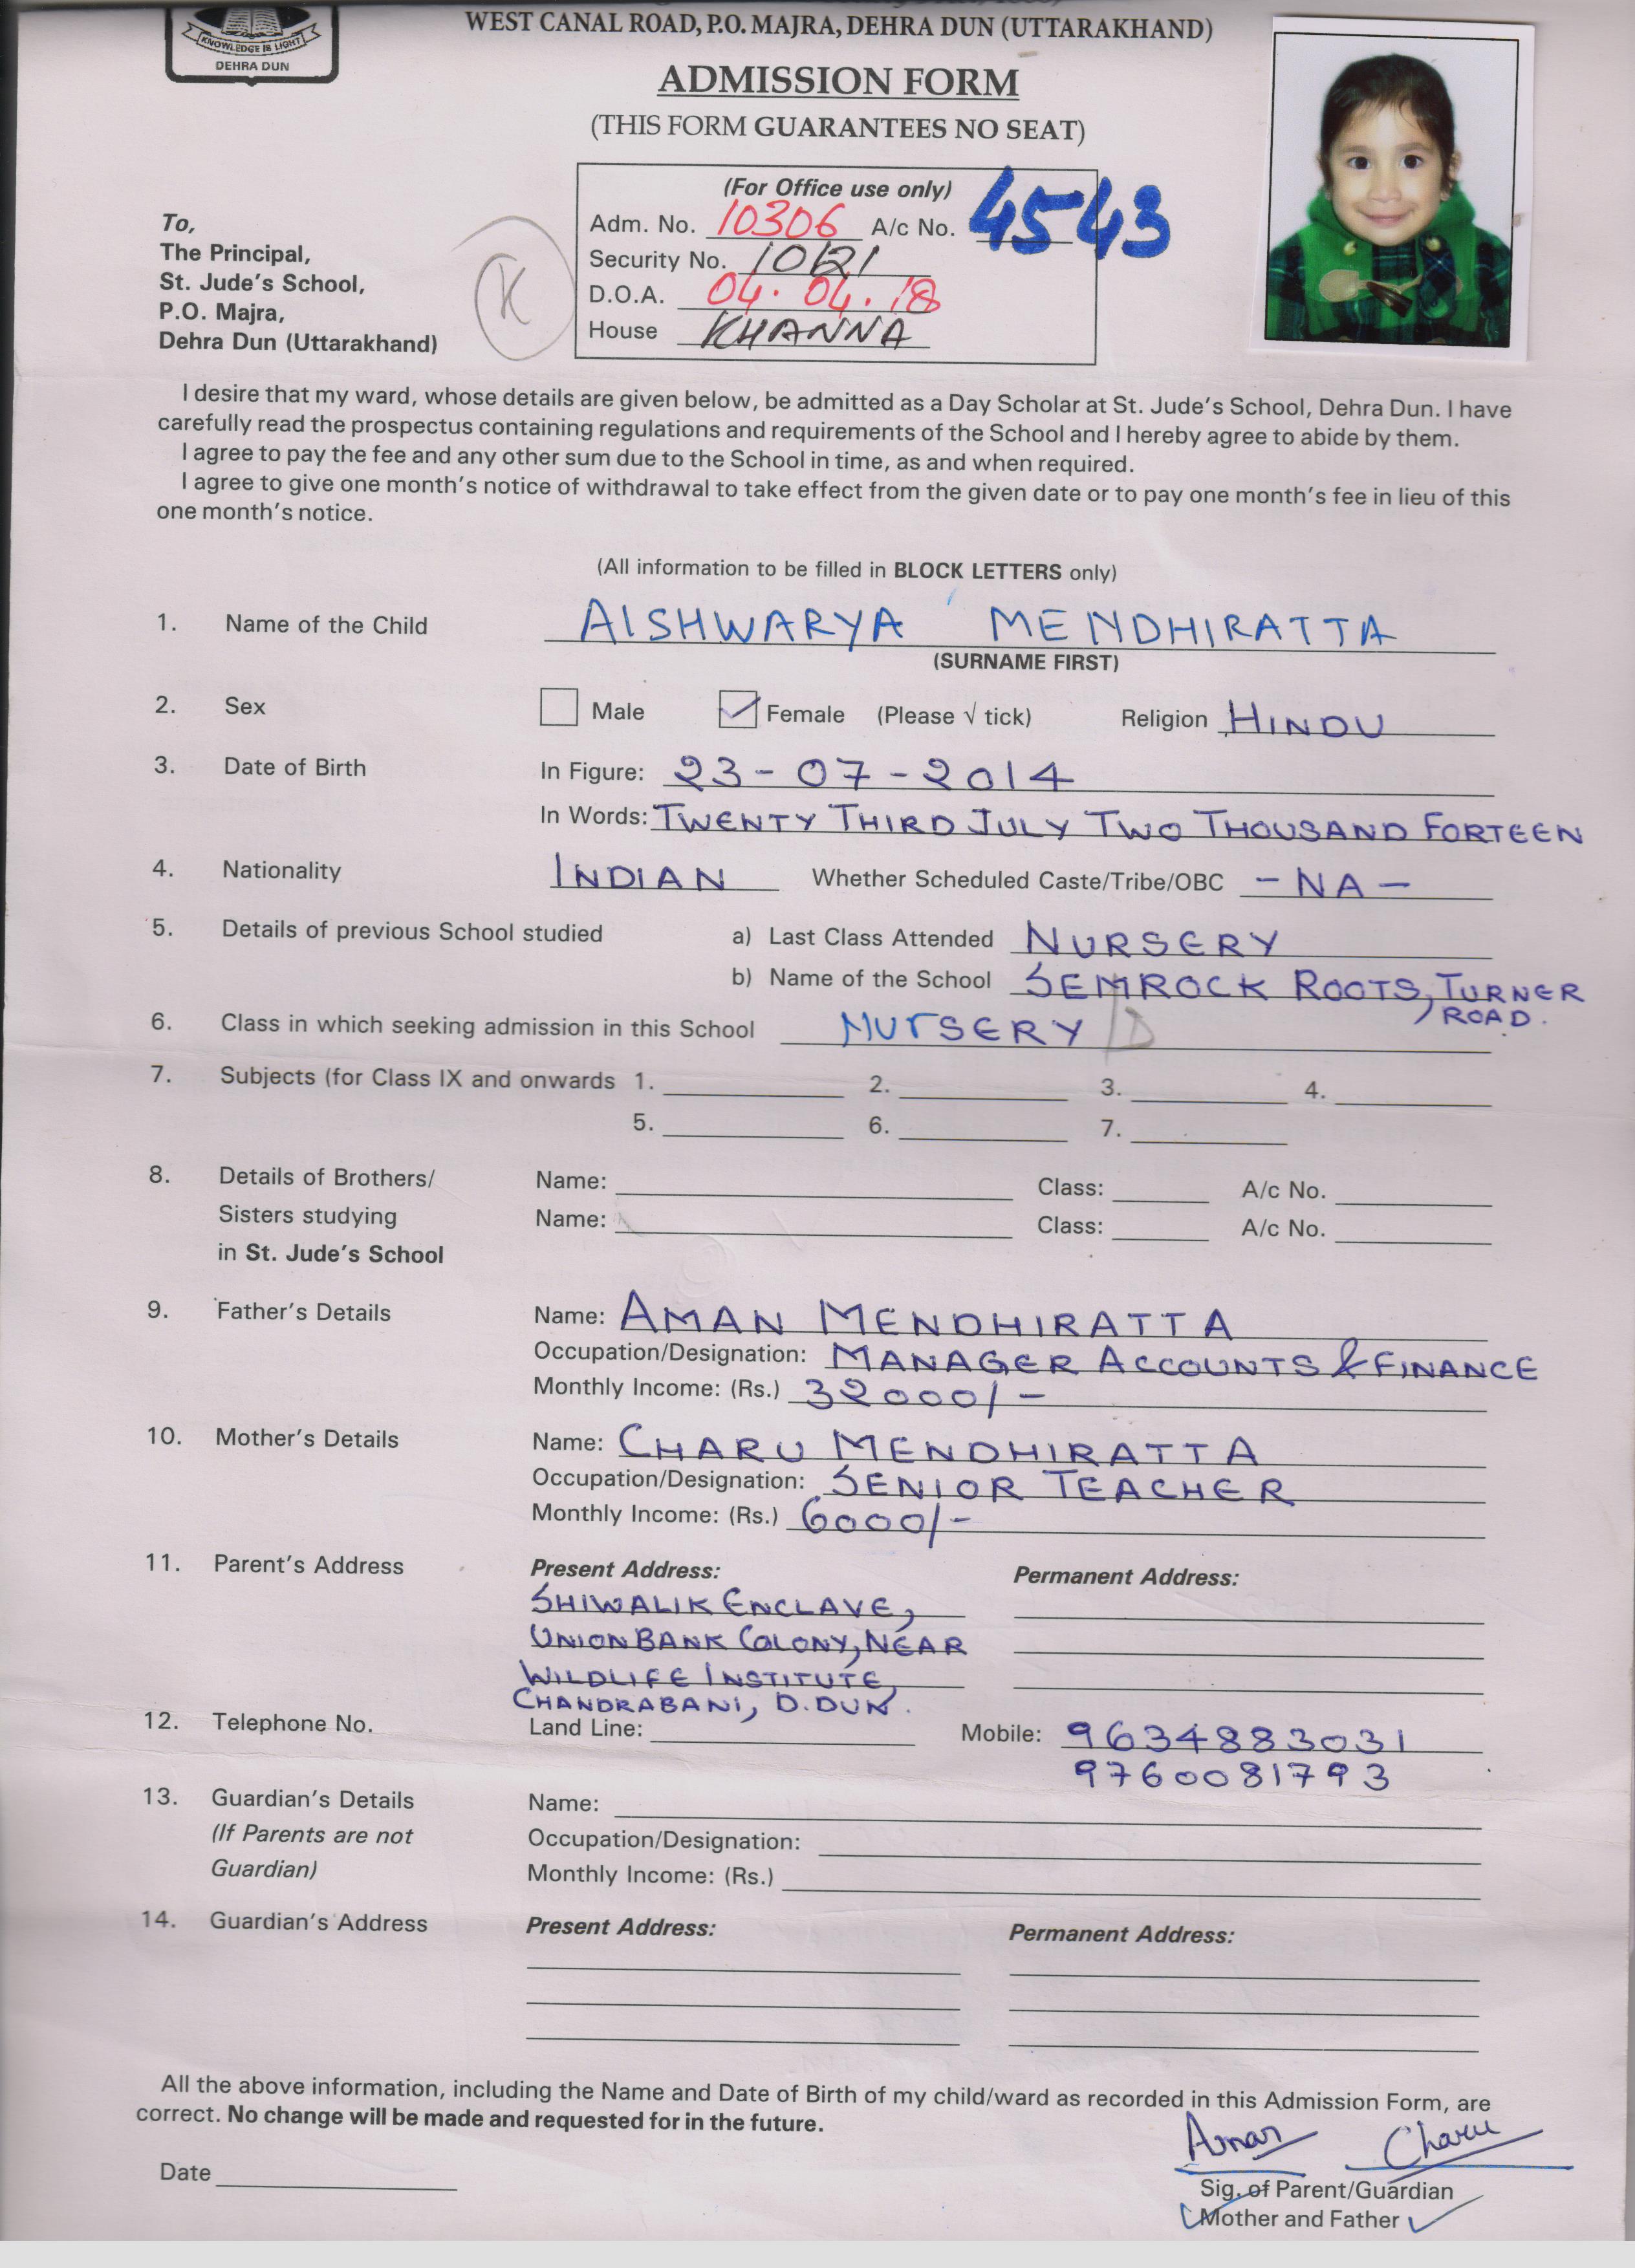 KNOWLEDGE IS LIGHT
DEHRA DUN
WEST CANAL ROAD, P.O. MAJRA, DEHRA DUN (UTTARAKHAND)
ADMISSION FORM
(THIS FORM GUARANTEES NO SEAT)
(For Office use only)
Adm. No. 10306 A/c No. 4543
Security No.
D.O.A. 04.04.18
House KHANNA
K
To,
The Principal,
St. Jude's School,
P.O. Majra,
Dehra Dun (Uttarakhand)
I desire that my ward, whose details are given below, be admitted as a Day Scholar at St. Jude's School, Dehra Dun. I have
carefully read the prospectus containing regulations and requirements of the School and I hereby agree to abide by them.
I agree to pay the fee and any other sum due to the School in time, as and when required.
I agree to give one month's notice of withdrawal to take effect from the given date or to pay one month's fee in lieu of this
one month's notice.
(All information to be filled in BLOCK LETTERS only)
1. Name of the Child AISHWARYA MENDHIRATTA
(SURNAME FIRST)
2. Sex Male Female (Please √ tick) Religion HINDU
3. Date of Birth In Figure: 23-07-2014
In Words: TWENTY THIRD JULY TWO THOUSAND FORTEEN
4. Nationality INDIAN Whether Scheduled Caste/Tribe/OBC - NA -
5. Details of previous School studied a) Last Class Attended NURSERY
b) Name of the School SEMROCK ROOTS, TURNER
ROAD.
6. Class in which seeking admission in this School NURSERY / D
7. Subjects (for Class IX and onwards 1. 2. 3. 4.
5. 6. 7.
8. Details of Brothers/ Name: Class: A/c No.
Sisters studying Name: Class: A/c No.
in St. Jude's School
9. Father's Details Name: AMAN MENDHIRATTA
Occupation/Designation: MANAGER ACCOUNTS & FINANCE
Monthly Income: (Rs.) 32000/-
10. Mother's Details Name: CHARU MENDHIRATTA
Occupation/Designation: SENIOR TEACHER
Monthly Income: (Rs.) 6000/-
11. Parent's Address Present Address: Permanent Address:
SHIWALIK ENCLAVE,
UNION BANK COLONY, NEAR
WILDLIFE INSTITUTE,
CHANDRABANI, D.DUN.
12. Telephone No. Land Line: Mobile: 9634883031
9760081793
13. Guardian's Details Name:
(If Parents are not Occupation/Designation:
Guardian) Monthly Income: (Rs.)
14. Guardian's Address Present Address: Permanent Address:
All the above information, including the Name and Date of Birth of my child/ward as recorded in this Admission Form, are
correct. No change will be made and requested for in the future.
Aman Charu
Date
Sig. of Parent/Guardian
Mother and Father